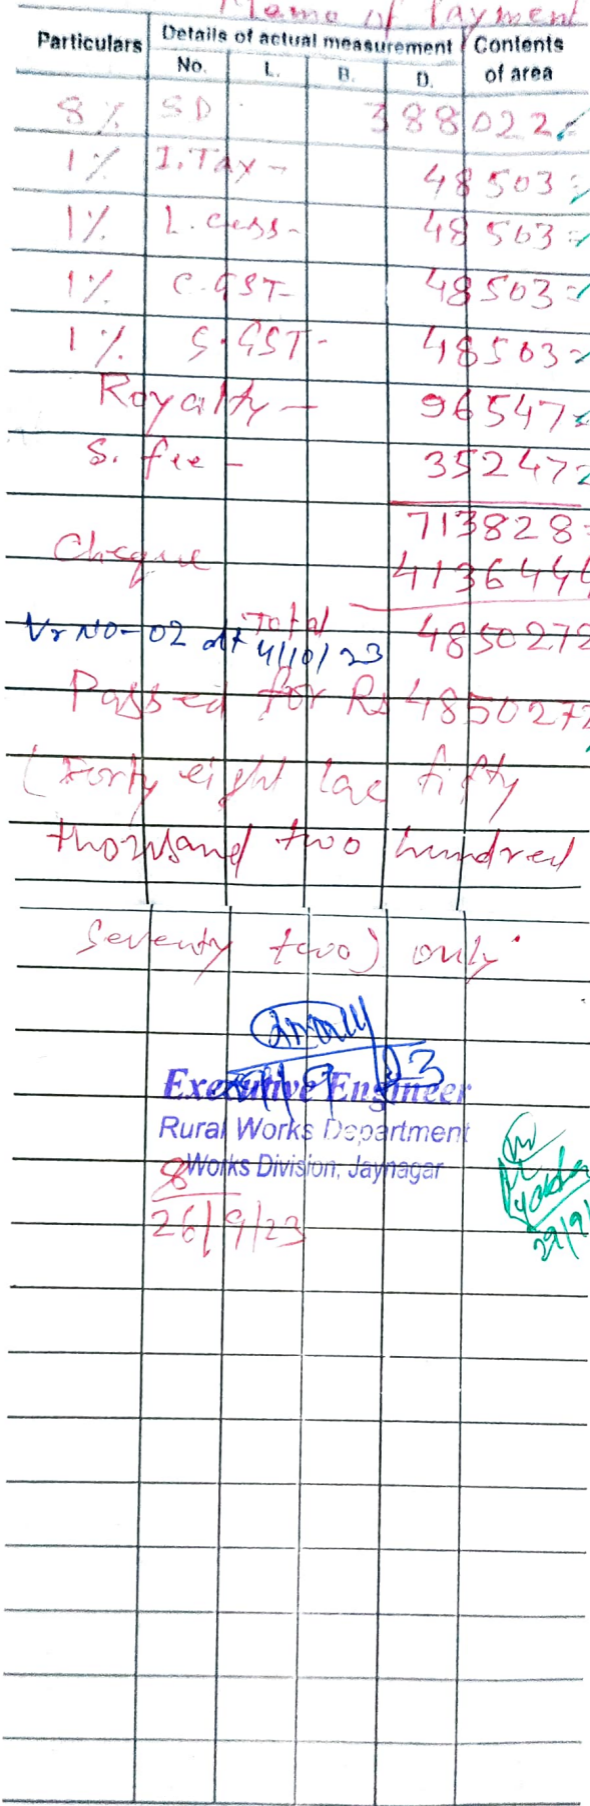 Memo of Payment
Particulars Details of actual measurement Contents of area
No. L. B. D.
8% SD 388022/
1% I.Tax - 48503=
1% L.cess - 48503=
1% C.GST- 48503=
1% S.GST- 48503=
Royalty - 96547=
S. fee - 35247=
713828=
Cheque 4136444
Total 4850272
Vr No-02 dt 4/10/23
Passed for Rs 4850272
(Forty eight lac fifty
thousand two hundred
Seventy two) only.
Executive Engineer
Rural Works Department
Works Division, Jaynagar
26/9/23
29/9/